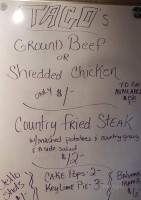 TACO's
GROUND BEEF
OR
Shredded Chicken
only $1-
TO GO
AVAILABLE
Country Fried STEAK
w/mashed potatoes & country gravy
& a side salad
$12-
CAKE Pops - 2-
Key Lime Pie - 3-
Jello
Shots
Bahama
Mama